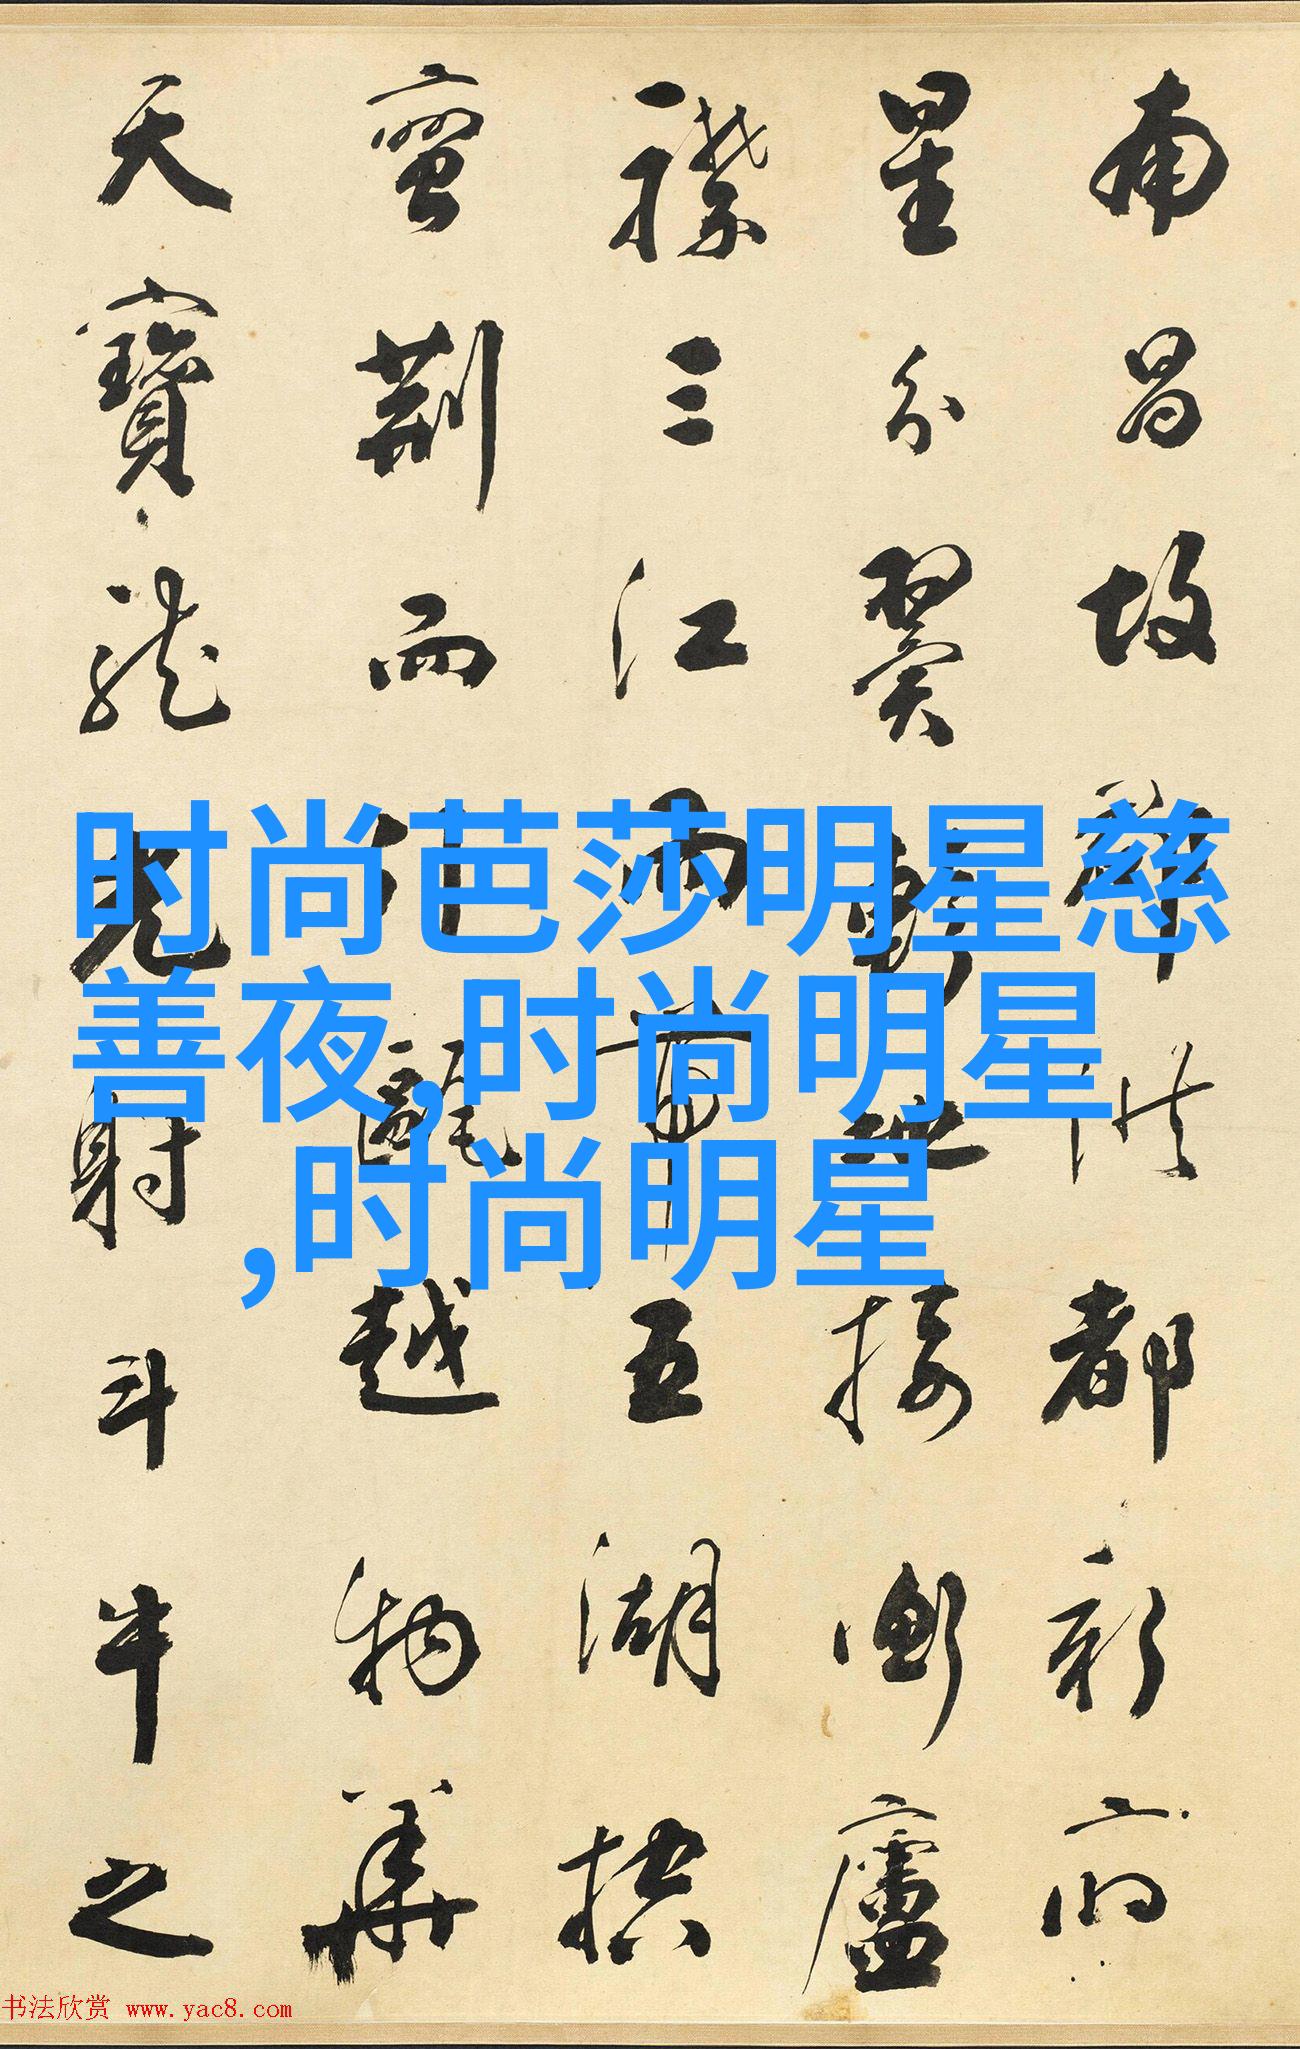 南昌故郡洪都新府
星分翼軫地接衡廬
襟三江而帶五湖控
蠻荊而引甌越物華
天寶龍光射斗牛之
时尚芭莎明星慈
善夜,时尚明星
,时尚明星
书法欣赏 www.yac8.com